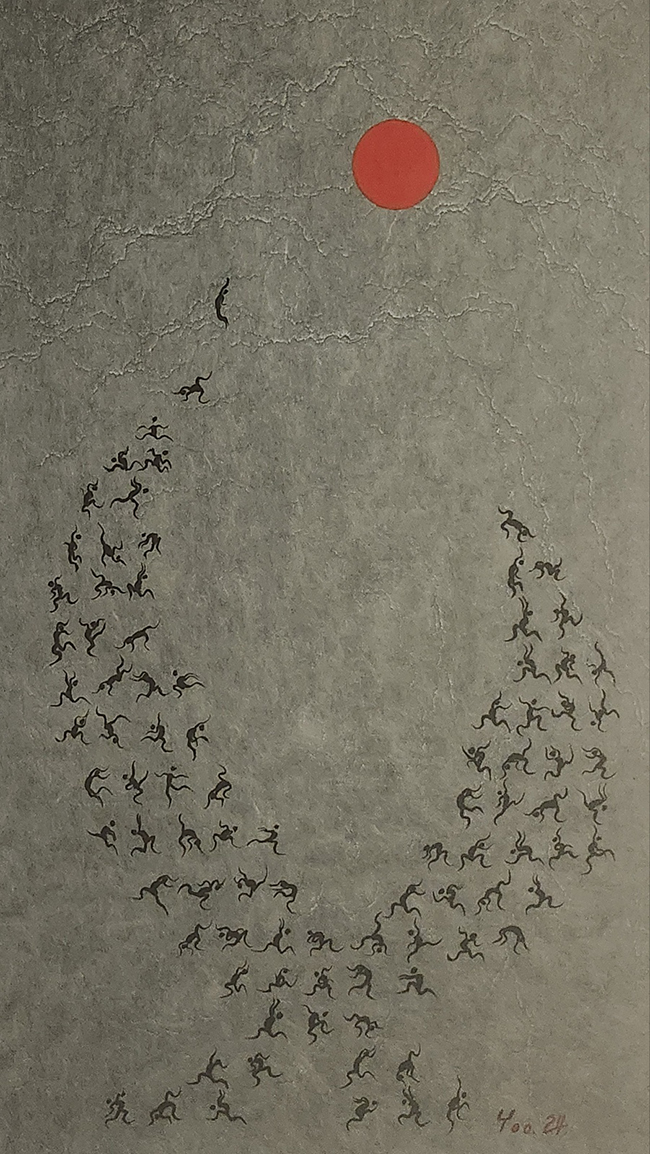 Yoo. 24